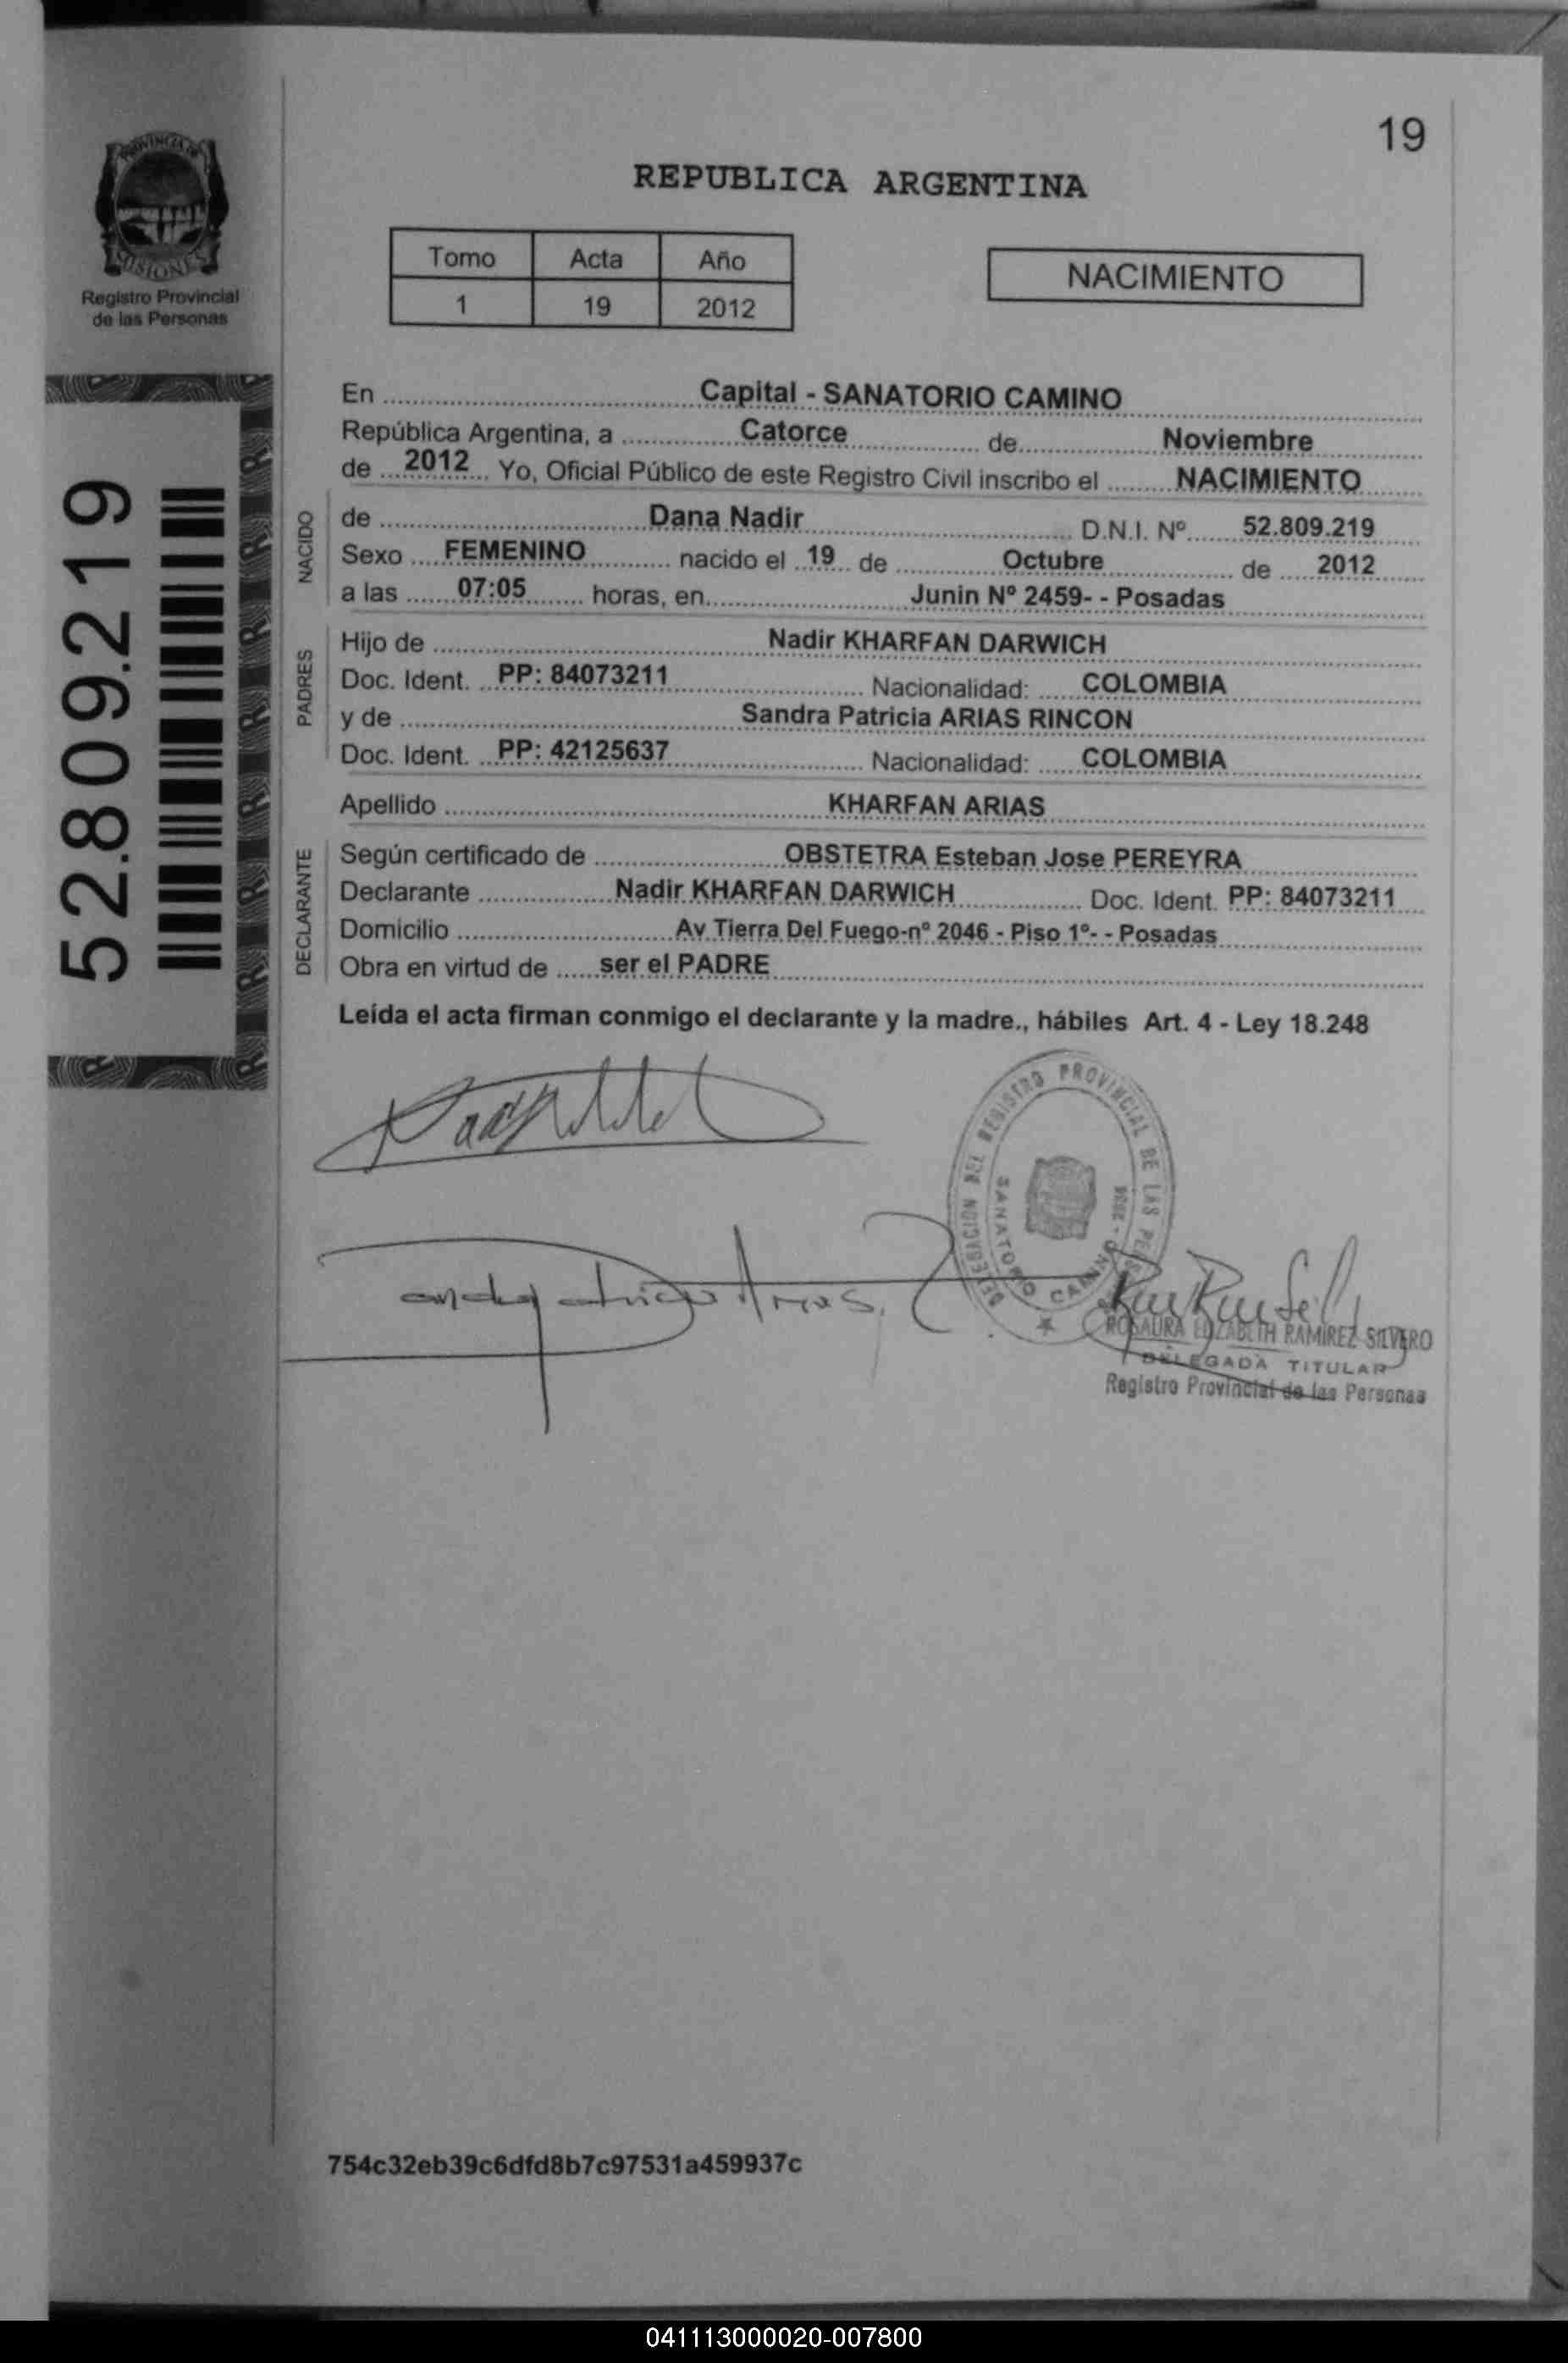 19
PROVINCIA DE
MISIONES
Registro Provincial
de las Personas
REPUBLICA ARGENTINA
Tomo Acta Año
1 19 2012
NACIMIENTO
52.809.219
En Capital - SANATORIO CAMINO
República Argentina, a Catorce de Noviembre
de 2012 Yo, Oficial Público de este Registro Civil inscribo el NACIMIENTO
NACIDO
de Dana Nadir D.N.I. Nº 52.809.219
Sexo FEMENINO nacido el 19 de Octubre de 2012
a las 07:05 horas, en Junin Nº 2459- - Posadas
PADRES
Hijo de Nadir KHARFAN DARWICH
Doc. Ident. PP: 84073211 Nacionalidad: COLOMBIA
y de Sandra Patricia ARIAS RINCON
Doc. Ident. PP: 42125637 Nacionalidad: COLOMBIA
Apellido KHARFAN ARIAS
DECLARANTE
Según certificado de OBSTETRA Esteban Jose PEREYRA
Declarante Nadir KHARFAN DARWICH Doc. Ident. PP: 84073211
Domicilio Av Tierra Del Fuego-nº 2046 - Piso 1º- - Posadas
Obra en virtud de ser el PADRE
Leída el acta firman conmigo el declarante y la madre., hábiles Art. 4 - Ley 18.248
DELEGACION DEL REGISTRO PROVINCIAL DE LAS
SANATORIO CAMINO
ROSAURA ELIZABETH RAMIREZ SILVERO
DELEGADA TITULAR
Registro Provincial de las Personas
754c32eb39c6dfd8b7c97531a459937c
041113000020-007800